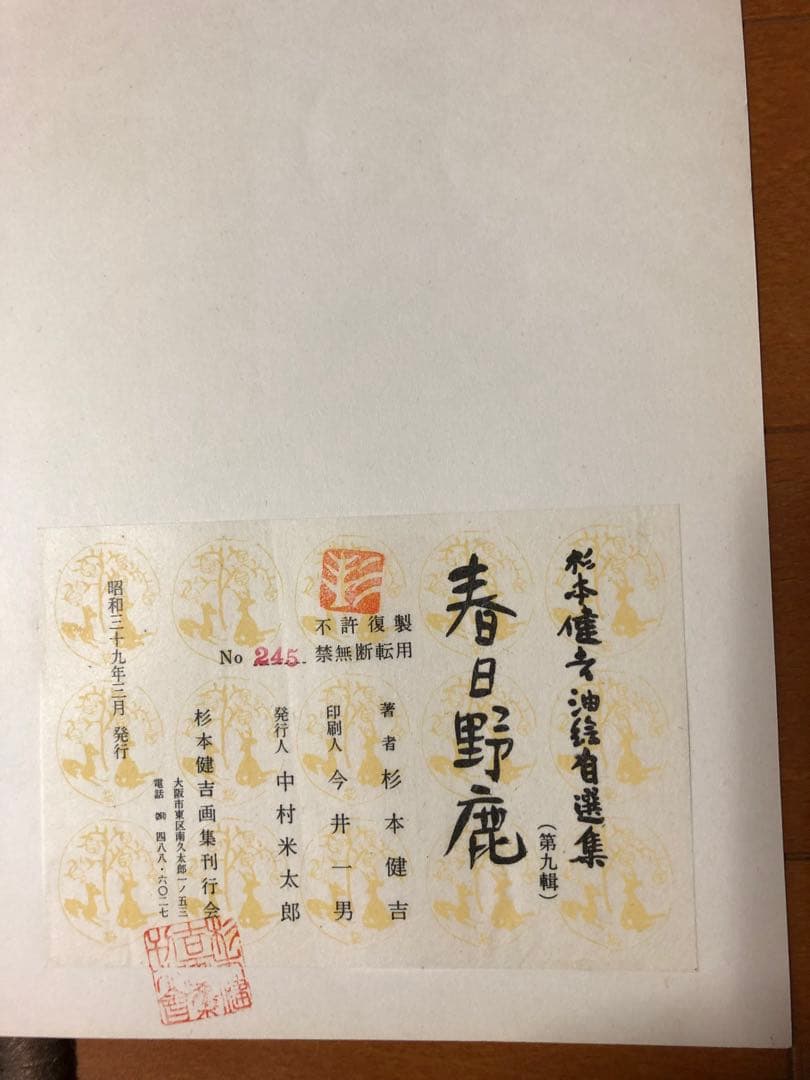 杉本健吉油絵自選集
(第九輯)
春日野鹿
杉
不許復製
禁無断転用
No 245
著者 杉本健吉
印刷人 今井一男
発行人 中村米太郎
杉本健吉画集刊行会
大阪市東区南久太郎一ノ五三
電話 四八八・六〇二七
昭和三十九年三月 発行